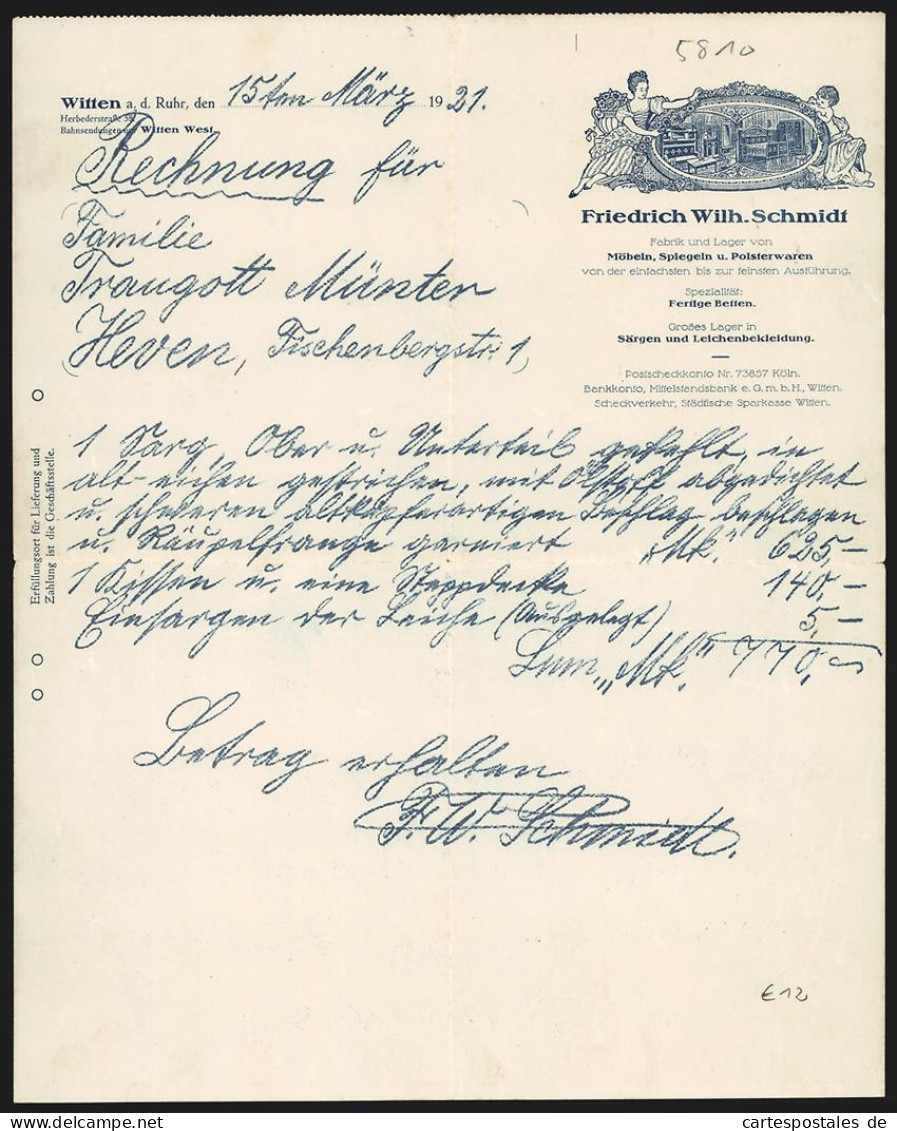 5810
Witten a. d. Ruhr, den 15ten März 1921.
Herbederstraße
Bahnsendungen nur Witten West
Friedrich Wilh. Schmidt
Fabrik und Lager von
Möbeln, Spiegeln u. Polsterwaren
von der einfachsten bis zur feinsten Ausführung.
Spezialität:
Fertige Betten.
Großes Lager in
Särgen und Leichenbekleidung.
Postscheckkonto Nr. 73857 Köln.
Bankkonto, Mittelstandsbank e. G. m. b. H., Witten.
Scheckverkehr, Städtische Sparkasse Witten.
Rechnung für
Familie
Traugott Münter
(Heven, Fischenbergstr. 1)
Erfüllungsort für Lieferung und
Zahlung ist die Geschäftsstelle.
1 Sarg, Ober u. Unterteil gekehlt, in
alt-eichen gestrichen, mit abgedichtet
u. schweren altkupferartigen Beschlag beschlagen
u. garniert Mk. 625,–
1 Kissen u. eine Steppdecke 140,–
Einsargen der Leiche (Ausgelegt) 5,–
Sum „Mk." 770,–
Betrag erhalten
F. W. Schmidt.
€12
cartespostales de